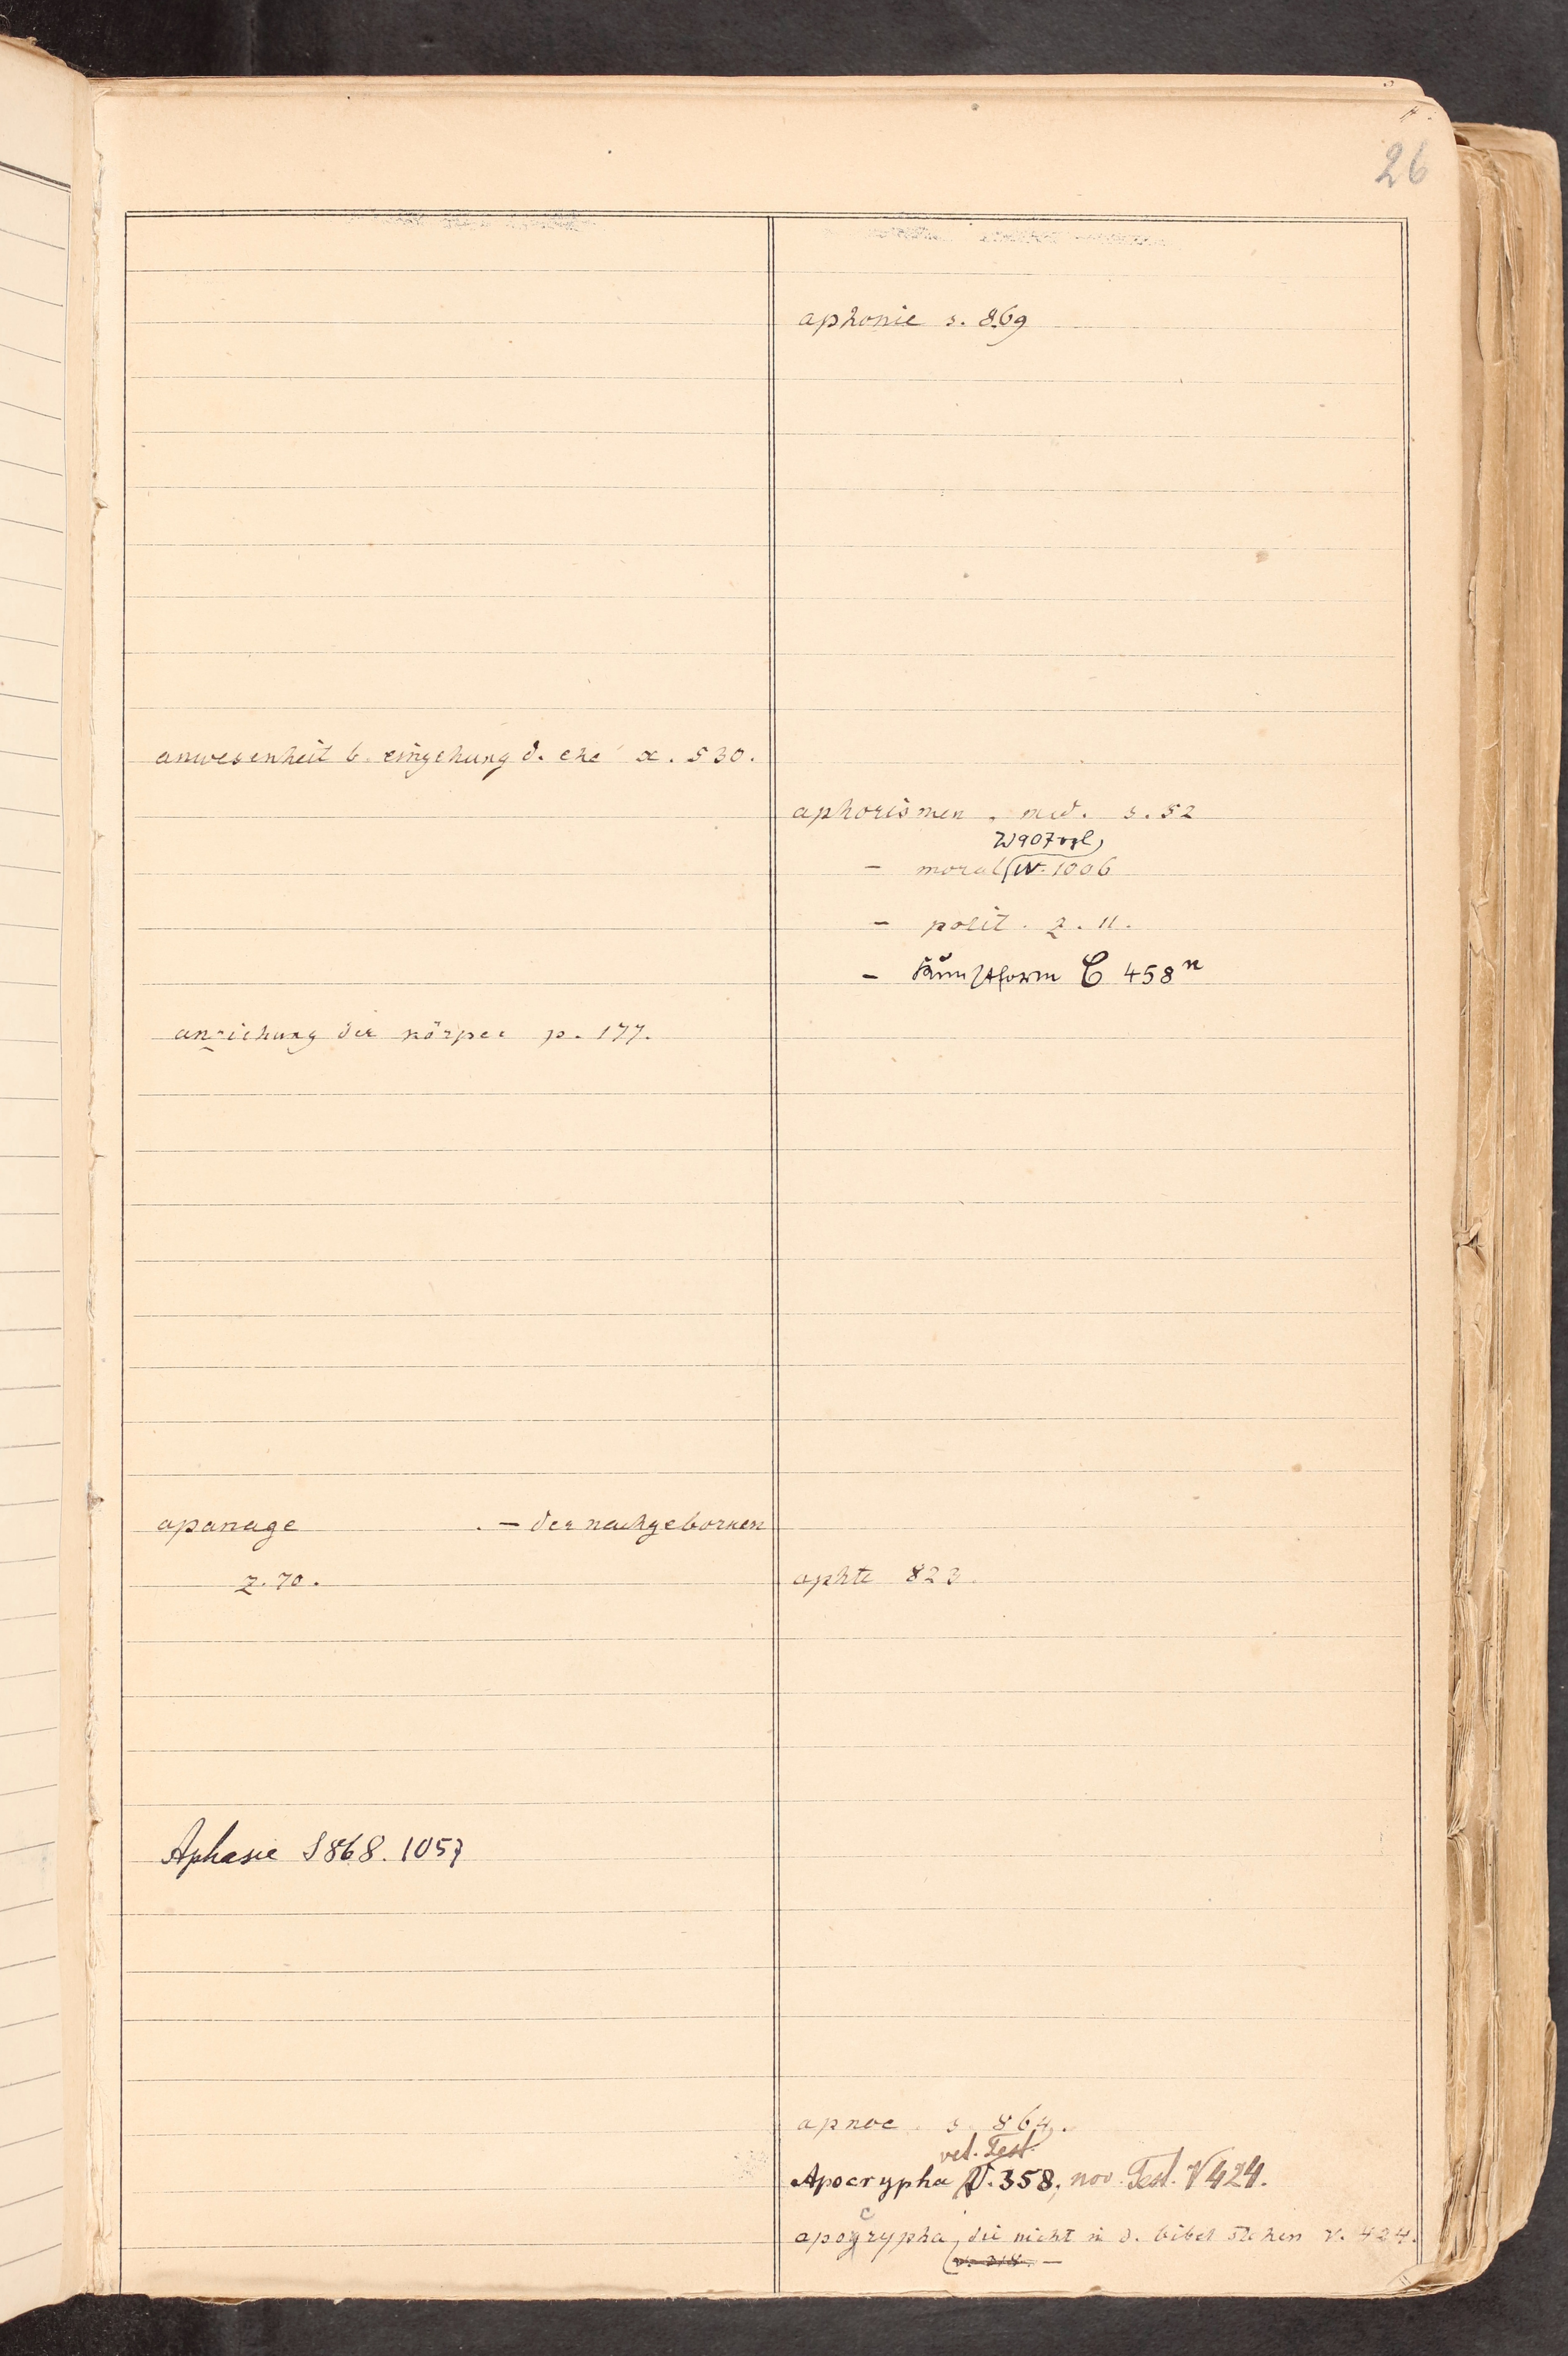 26
anwesenheit b. eingehung d. ehe x. 530.
anziehung der körper p. 177.
apanage . – der nachgebornen
z. 70.
Aphasie S 868. 1057
aphonie s. 869
aphorismen , med. s. 52
W907 vgl,
– moral W. 1006
– polit. z. 11.
– Kunstform C 458ⁿ
aphte 823.
apnoe s. 864.
vet. Test.
Apocrypha V. 358, nov. Test. V 424.
c
apogrypha, die nicht in d. bibel stehen v. 424.